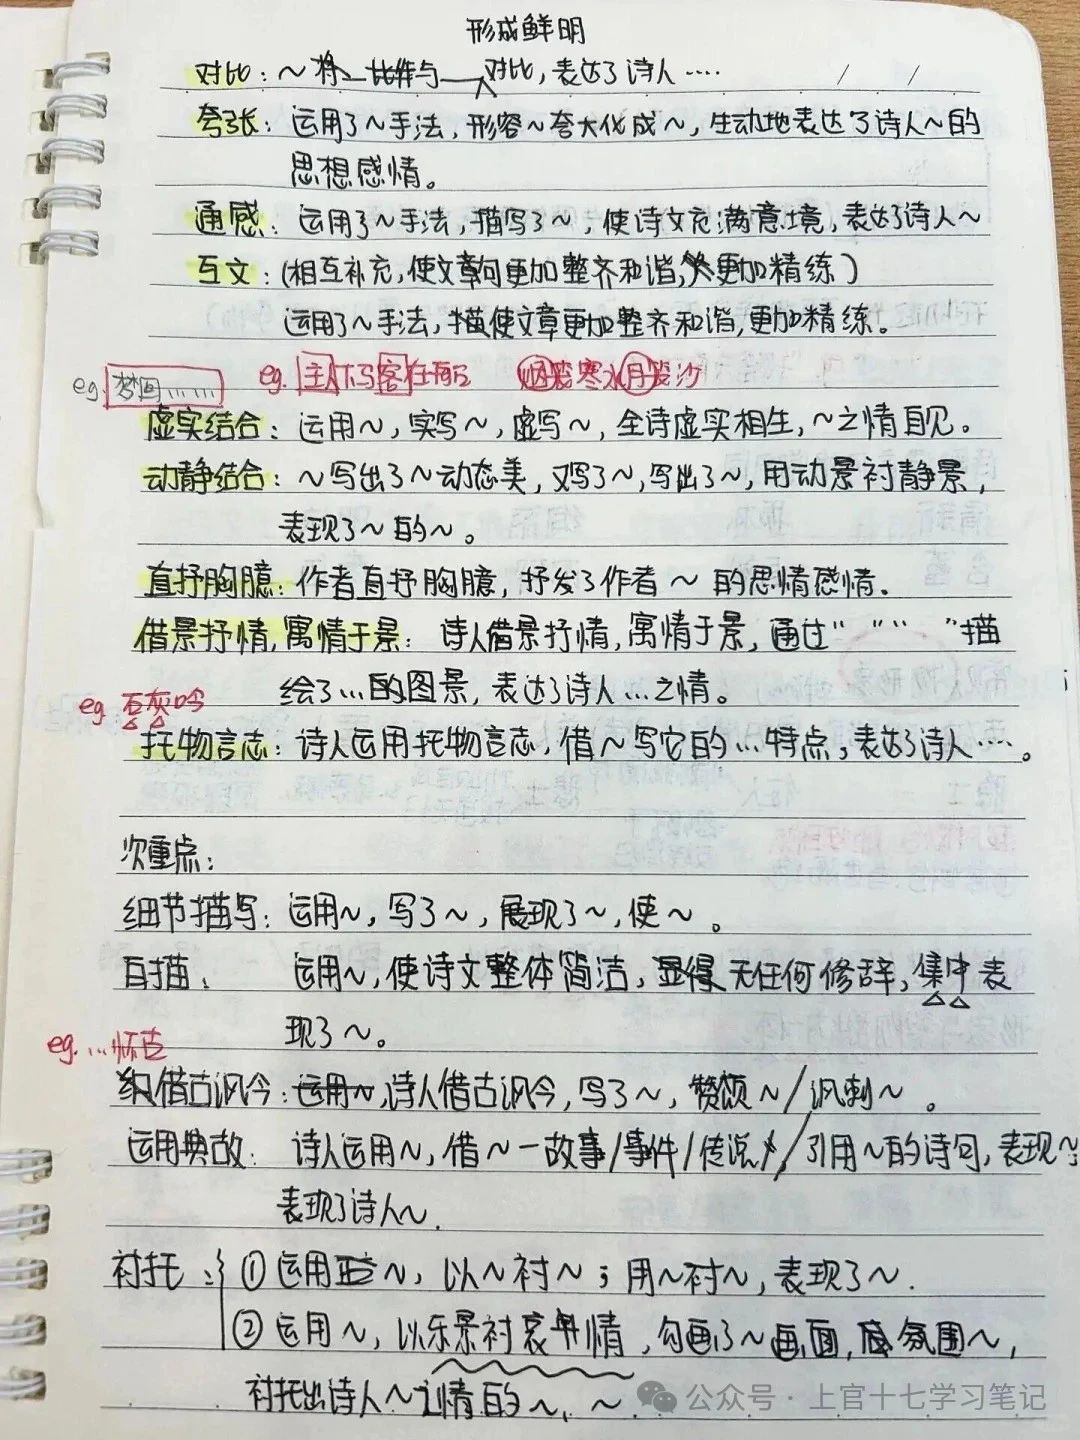 形成鲜明
对比：～将 与 对比，表达了诗人····
夸张：运用了～手法，形容～夸大化成～，生动地表达了诗人～的
思想感情。
通感：运用了～手法，描写了～，使诗文充满意境，表达了诗人～
互文：(相互补充，使文章句更加整齐和谐，更加精练)
运用了～手法，描使文章更加整齐和谐，更加精练。
eg. 梦回…… eg. 主人下马客在船 烟笼寒水月笼沙
虚实结合：运用～，实写～，虚写～，全诗虚实相生，～之情自见。
动静结合：～写出了～动态美，又写了～，写出了～，用动景衬静景，
表现了～的～。
直抒胸臆：作者直抒胸臆，抒发了作者～的思情感情。
借景抒情，寓情于景：诗人借景抒情，寓情于景，通过“ ”“ ”描
绘了…的图景，表达了诗人…之情。
eg 石灰吟
托物言志：诗人运用托物言志，借～写它的…特点，表达了诗人….。
次重点：
细节描写：运用～，写了～，展现了～，使～。
白描：运用～，使诗文整体简洁，显得无任何修辞，集中表
现了～。
eg. …怀古
借古讽今：运用～，诗人借古讽今，写了～，赞颂～/讽刺～。
运用典故：诗人运用～，借～一故事/事件/传说/引用～的诗句，表现～
表现了诗人～.
衬托：①运用～，以～衬～；用～衬～，表现了～.
②运用～，以乐景衬哀情，勾画了～画面，氛围～，
衬托出诗人～之情的～，～.
公众号·上官十七学习笔记